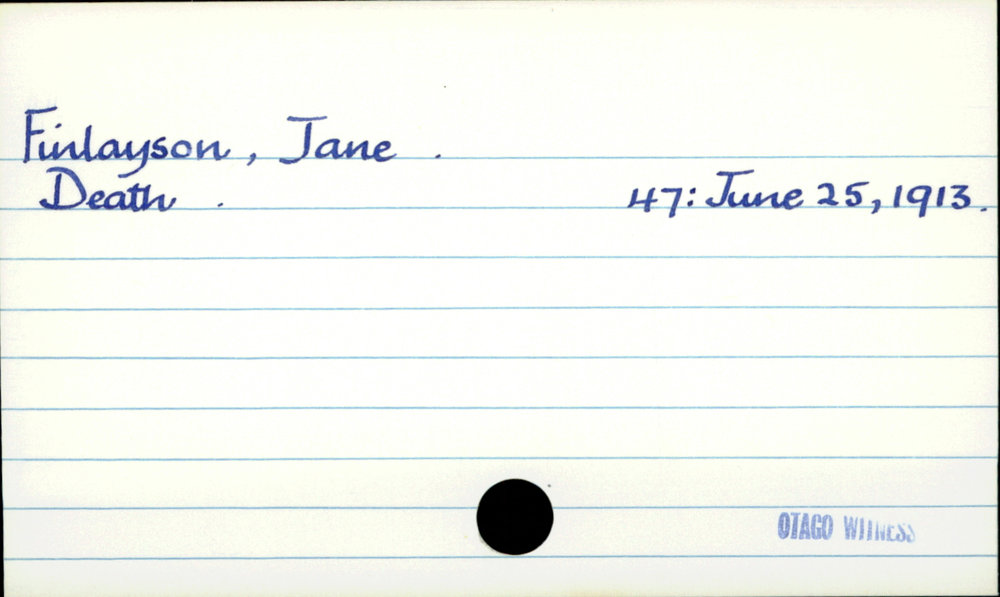 Finlayson, Jane.
Death. 47: June 25, 1913.
OTAGO WITNESS